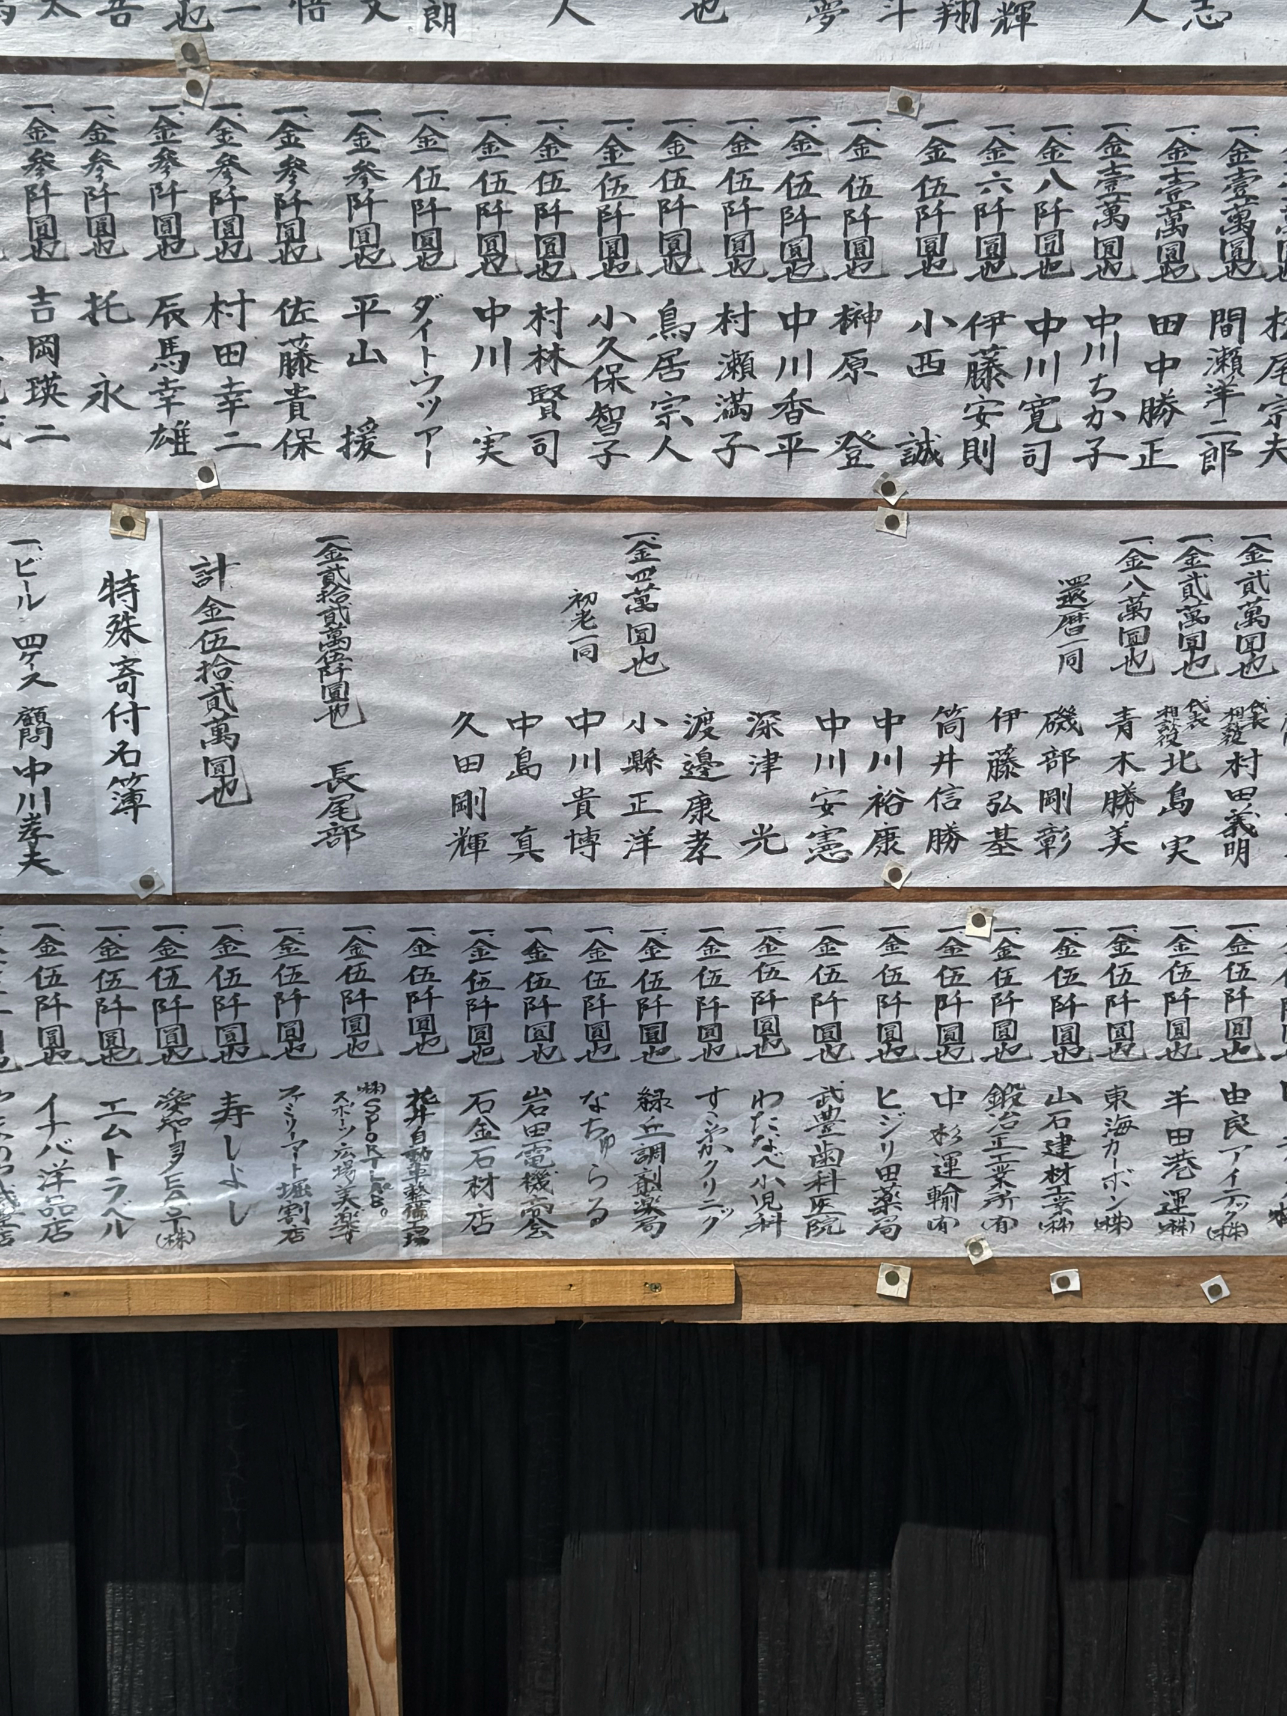 志
人
輝
翔
斗
夢
也
人
朗
文
悟
一
也
吾
太
一金壹萬圓也 間瀬洋二郎
一金壹萬圓也 田中勝正
一金壹萬圓也 中川ちか子
一金八阡圓也 中川寛司
一金六阡圓也 伊藤安則
一金伍阡圓也 小西誠
一金伍阡圓也 榊原登
一金伍阡圓也 中川香平
一金伍阡圓也 村瀬満子
一金伍阡圓也 鳥居宗人
一金伍阡圓也 小久保智子
一金伍阡圓也 村林賢司
一金伍阡圓也 中川実
一金伍阡圓也 ダイトウツアー
一金参阡圓也 平山援
一金参阡圓也 佐藤貴保
一金参阡圓也 村田幸二
一金参阡圓也 辰馬幸雄
一金参阡圓也 托永
一金参阡圓也 吉岡瑛二
一金貳萬圓也 代表相談役 村田義明
一金貳萬圓也 代表相談役 北島実
一金八萬圓也 青木勝美
還暦一同 磯部剛彰
伊藤弘基
筒井信勝
中川裕康
中川安憲
深津光
渡邊康孝
一金四萬圓也 小縣正洋
初老一同 中川貴博
中島真
久田剛輝
一金貳拾貳萬伍阡圓也 長尾部
計金伍拾貳萬圓也
特殊寄付名簿
一、ビール 四ケース 顧問 中川孝夫
一金伍阡圓也 由良アイテック(株)
一金伍阡圓也 半田港運(株)
一金伍阡圓也 東海カーボン(株)
一金伍阡圓也 山石建材工業(株)
一金伍阡圓也 鍛冶正工業所(有)
一金伍阡圓也 中杉運輸(有)
一金伍阡圓也 ヒジリ田薬局
一金伍阡圓也 武豊歯科医院
一金伍阡圓也 わたなべ小児科
一金伍阡圓也 すこやかクリニック
一金伍阡圓也 緑丘調剤薬局
一金伍阡圓也 なちゅらる
一金伍阡圓也 岩田電機商会
一金伍阡圓也 石金石材店
一金伍阡圓也 花井自動車整備工場
一金伍阡圓也 (株)SPORTLABO。スポーツ広場美楽寺
一金伍阡圓也 ファミリーマート堀割店
一金伍阡圓也 寿しよし
一金伍阡圓也 愛知トヨタEAST(株)
一金伍阡圓也 エムトラベル
一金伍阡圓也 イナバ洋品店